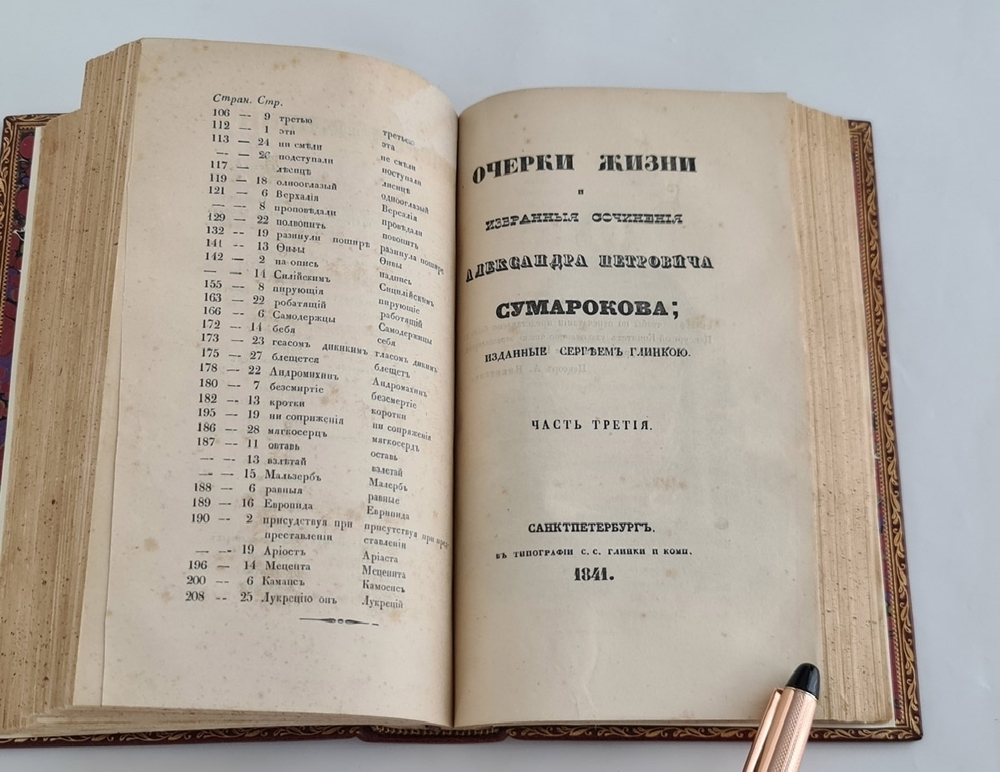 Стран. Стр.
106 — 9 третью третьею
112 — 1 эти эта
113 — 24 ни смѣли не смѣли
— — 26 подступали поступали
117 — лѣсице лисице
119 — 18 однооглазый одноглазый
121 — 6 Верхалія Версалія
— — 8 проповѣдали провѣдали
129 — 22 полвопить повопить
132 — 19 разинули поширѣ разинула пошире
141 — 13 Ѳивы Ѳивы
142 — 2 на опись надпись
— — 14 Силійскимъ Сицилійскимъ
155 — 8 пирующія пирующіе
163 — 22 робатящій работящій
166 — 6 Самодержцы Самодержцы
172 — 14 бебя себя
173 — 23 гсасомъ дикнкимъ гласомъ дикимъ
175 — 27 блещется блещетъ
178 — 22 Андромихинъ Андромахинъ
180 — 7 безсмиртіе безсмертіе
182 — 13 кротки коротки
195 — 19 ни сопряженія ни сопряженія
186 — 28 мягкосерцъ мягкосердъ
187 — 11 овтавь оставь
— — 13 взлѣтай взлетай
— — 15 Мальзербъ Малербъ
188 — 6 равныя равные
189 — 16 Европида Еврипида
190 — 2 присудствуя при присутствуя при
преставленіи ставленіи
— — 19 Аріостъ Аріаста
196 — 14 Мецента Мецената
200 — 6 Камансъ Камоенсъ
208 — 25 Лукрецію онъ Лукрецій
ОЧЕРКИ ЖИЗНИ
И
ИЗБРАННЫЯ СОЧИНЕНІЯ
АЛЕКСАНДРА ПЕТРОВИЧА
СУМАРОКОВА;
ИЗДАННЫЕ СЕРГѢЕМЪ ГЛИНКОЮ.
ЧАСТЬ ТРЕТІЯ.
САНКТПЕТЕРБУРГЪ.
ВЪ ТИПОГРАФІИ С. С. ГЛИНКИ И КОМП.
1841.